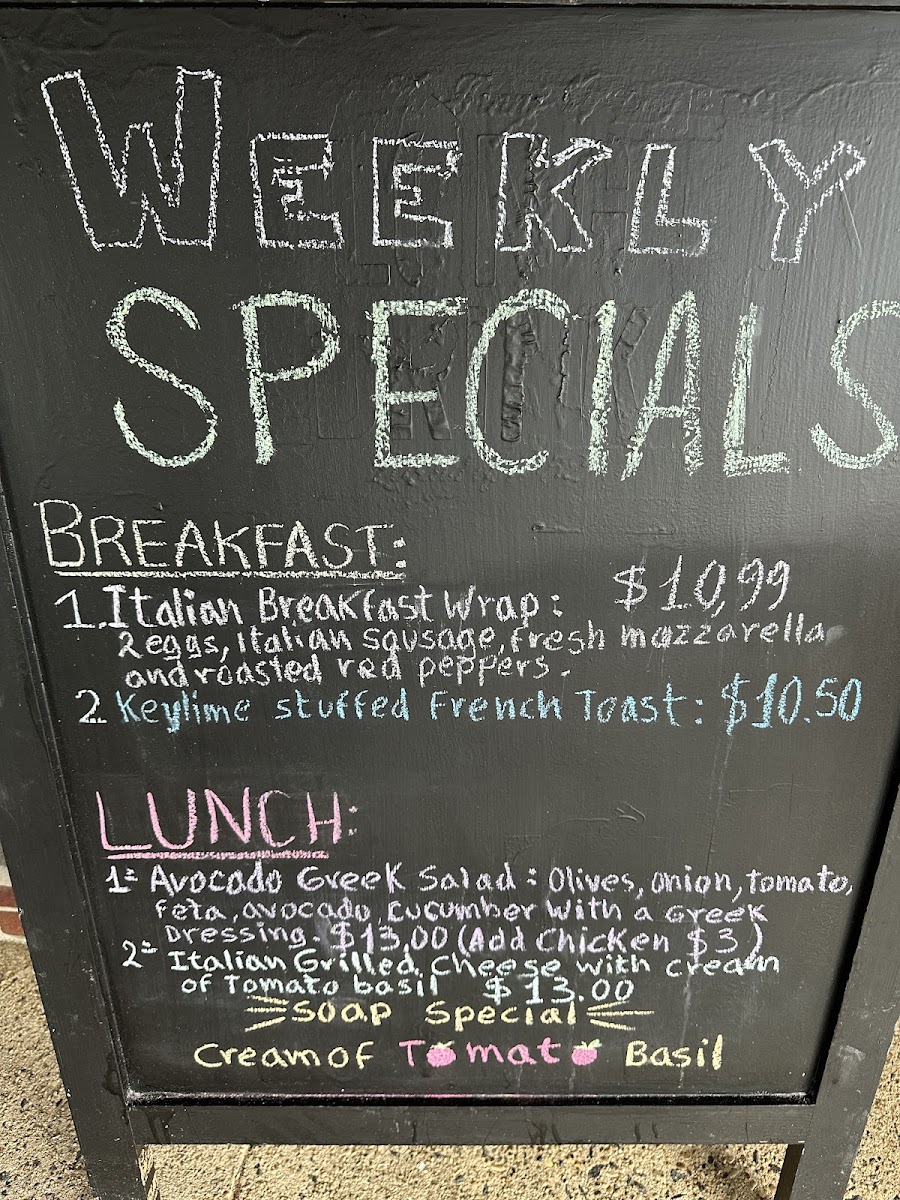 WEEKLY
SPECIALS
BREAKFAST:
1. Italian Breakfast Wrap: $10,99
2 eggs, Italian sausage, fresh mazzarella
and roasted red peppers.
2. Keylime stuffed French Toast: $10.50
LUNCH:
1= Avocado Greek Salad: Olives, onion, tomato,
feta, avocado, cucumber with a Greek
Dressing. $13,00 (Add Chicken $3)
2= Italian Grilled Cheese with cream
of Tomato basil $13.00
Soap Special
Cream of Tomato Basil